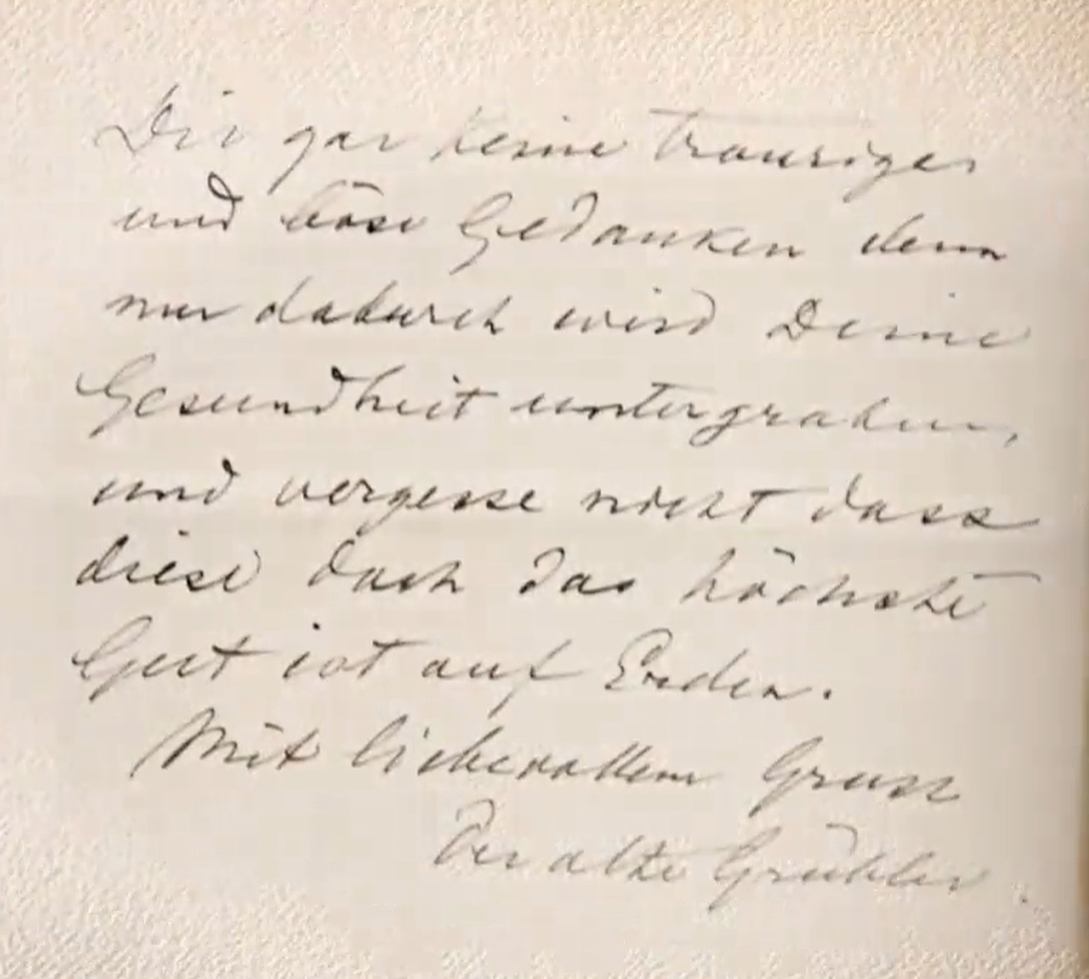 Dir gar keine trauriger
und böse Gedanken denn
nur dadurch wird Deine
Gesundheit untergraben,
und vergesse nicht dass
diese doch das höchste
Gut ist auf Erden.
Mit liebevollem Gruss
Der alte Grübler